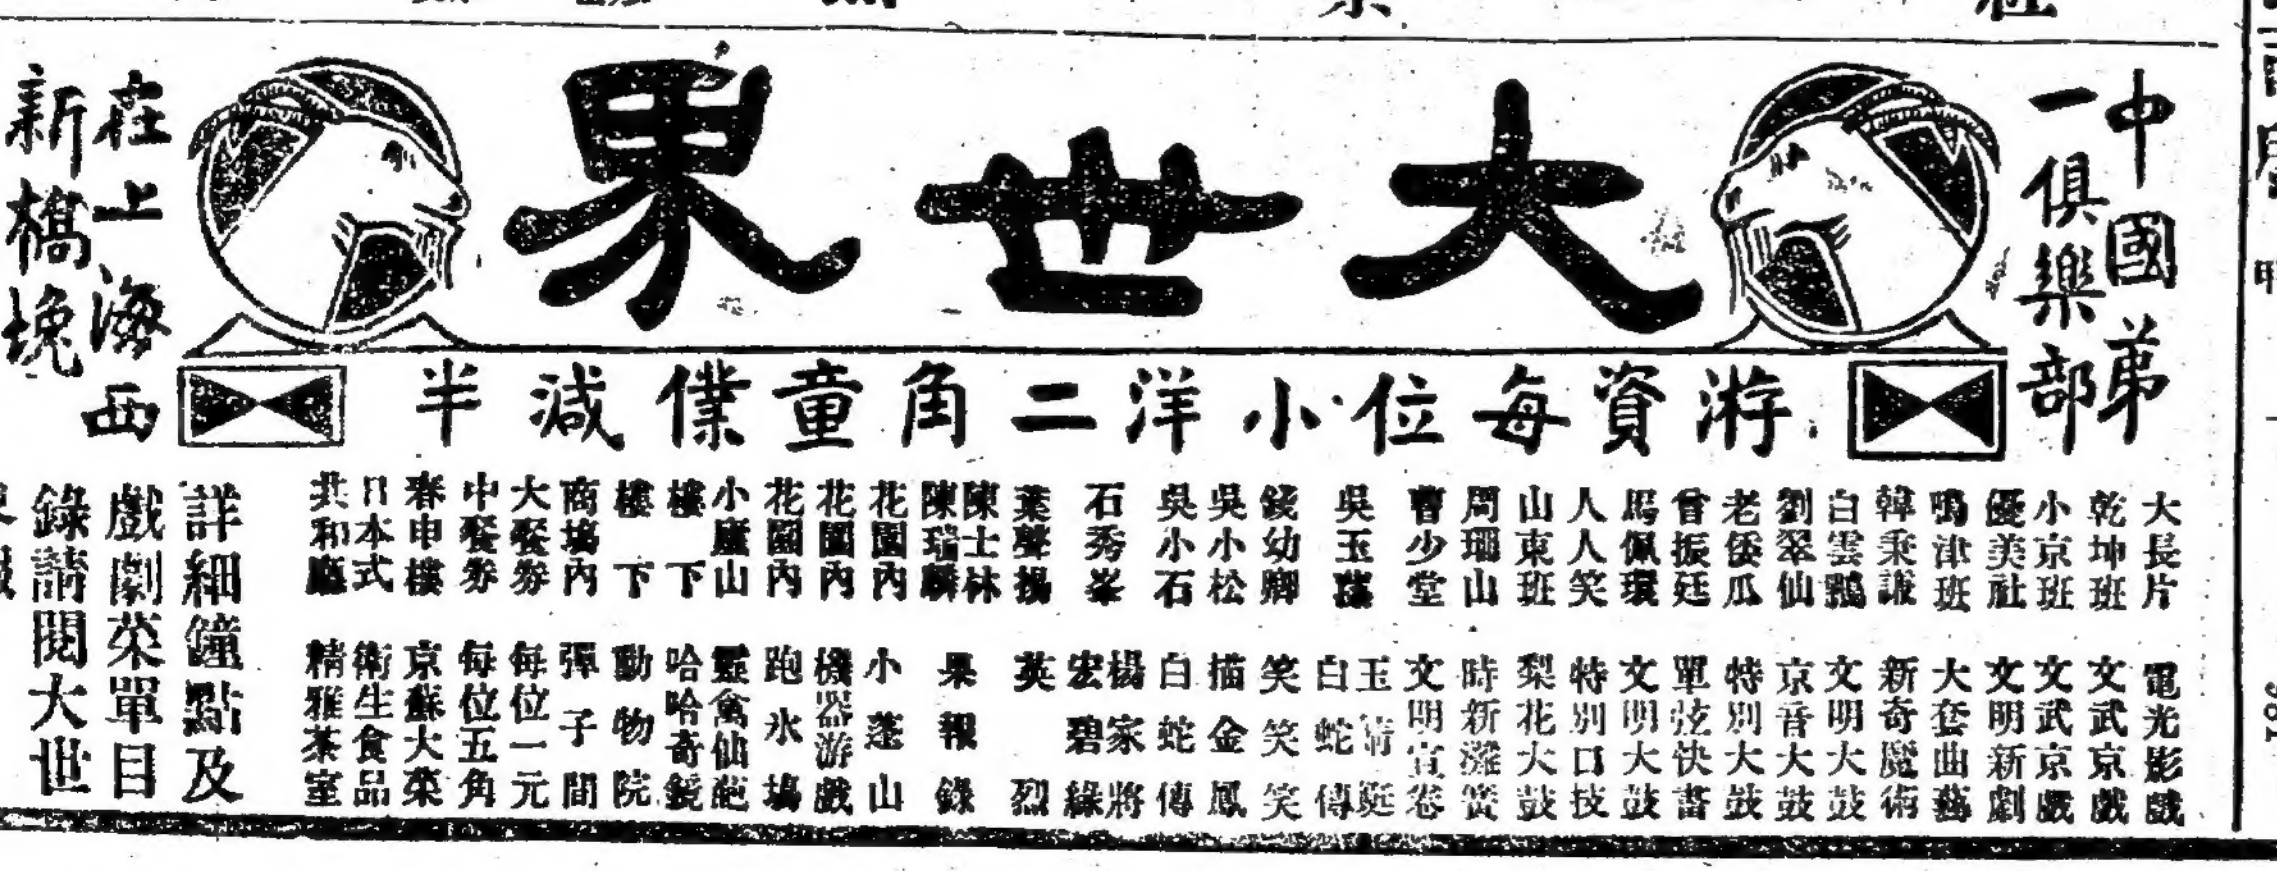 中國弟
一俱樂部
大世界
在上海西
新橋堍
游資每位小洋二角童僕減半
大長片 電光影戲
乾坤班 文武京戲
小京班 文武京戲
優美社 文明新劇
鳴津班 大套曲藝
韓秉謙 新奇魔術
白雲鵬 文明大鼓
劉翠仙 京音大鼓
老倭瓜 特別大鼓
曾振廷 單弦快書
馬佩環 文明大鼓
人人笑 特別口技
山東班 梨花大鼓
周珊山 時新灘簧
曹少堂 文明宣卷
吳玉蓀 玉蜻蜓 白蛇傳
錢幼卿 笑笑笑
吳小松 描金鳳
吳小石 白蛇傳
石秀峯 楊家將 宏碧緣
葉聲揚 英烈
陳士林 陳瑞麟 果報錄
花園內 小蓬山
花園內 機器游戲
花園內 跑氷塲
小廬山 靈禽仙葩
樓下 哈哈奇鏡
樓下 動物院
商塲內 彈子間
大餐券 每位一元
中餐券 每位五角
春申樓 京蘇大菜
日本式 衛生食品
共和廳 精雅茶室
詳細鐘點及
戲劇菜單目
錄請閱大世